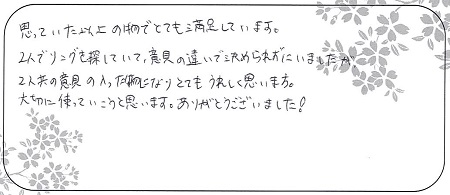 思っていた以上の物でとても満足しています。
2人でリングを探していて、意見の違いで決められずにいましたが、
2人共の意見の入った物になりとてもうれしく思います。
大切に使っていこうと思います。ありがとうございました!